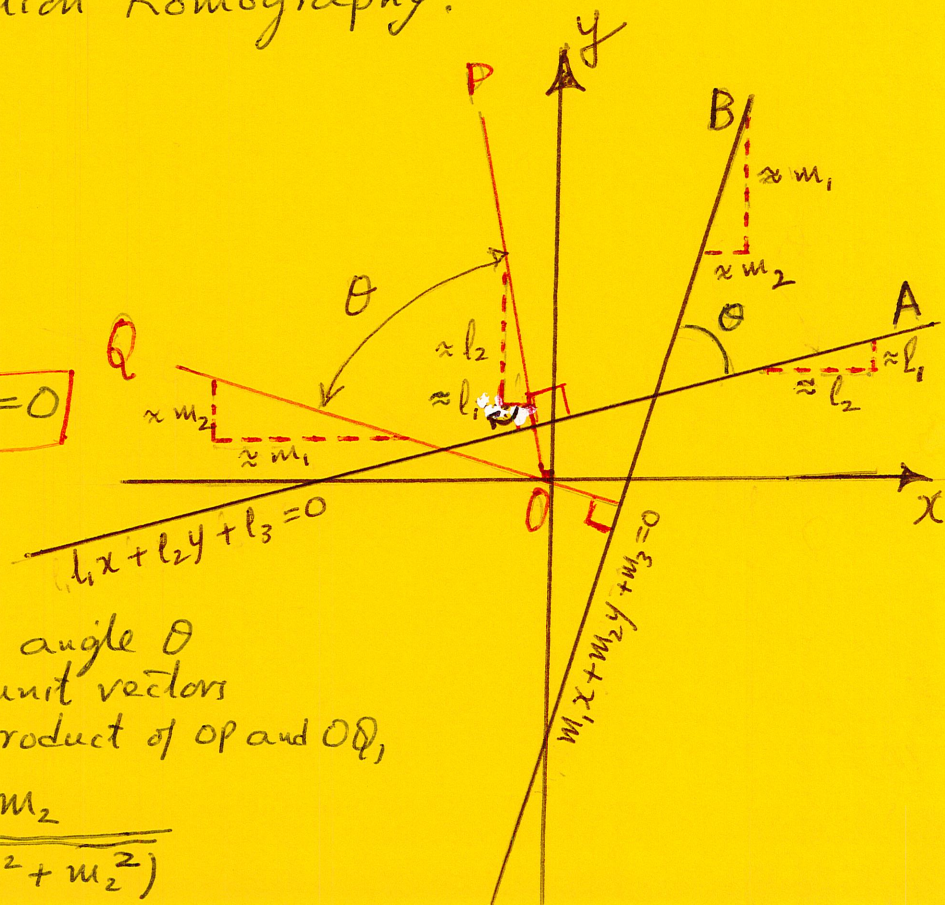 Homography.
y
P
B
≈ m₁
≈ m₂
θ
A
θ
Q
≈ l₂
≈ l₁
≈ l₂
≈ l₁
=0
≈ m₂
≈ m₁
O
x
l₁x + l₂y + l₃ = 0
m₁x + m₂y + m₃ = 0
angle θ
unit vectors
roduct of OP and OQ,
m₂
² + m₂²)